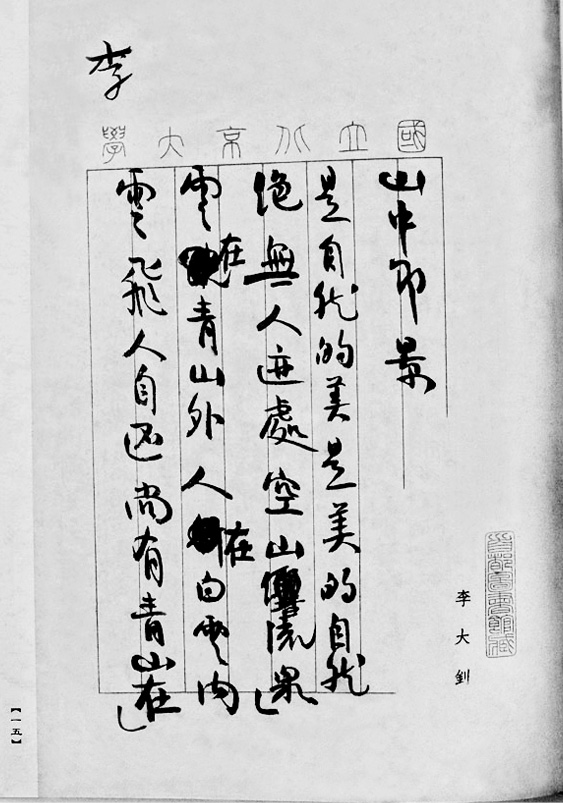 國立北京大學
山中即景
是自然的美是美的自然
絶無人迹處空山響流泉
雲在青山外人在白雲内
雲飛人自還尚有青山在
李
李大釗
首都圖書館藏
【一五】